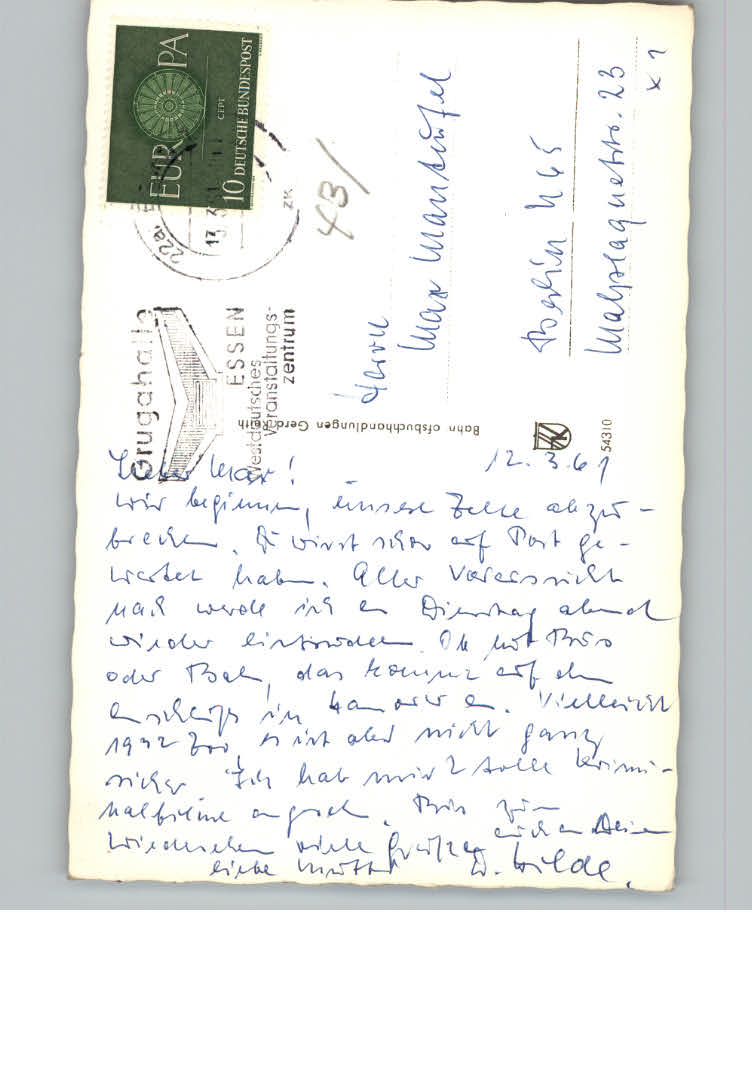 EUROPA
CEPT
10 DEUTSCHE BUNDESPOST
22a
13.3.61
ZK
43/
Grugahalle
ESSEN
Westdeutsches
Veranstaltungs-
zentrum
Herrn
Max Manteufel
Berlin N 65
Malplaquetstr. 23
x 1
Bahnhofsbuchhandlungen Gerd Keith
54310
12.3.61
Lieber Max!
Wir beginnen, unsere Zelte abzu-
brechen. Du wirst schon auf Post ge-
wartet haben. Aller Voraussicht
nach werde ich am Dienstag abend
wieder eintrudeln. Ob mit Büs
oder Bahn, das kommt auf den
Anschluss in Hannover an. Vielleicht
1932 Zoo, es ist aber nicht ganz
sicher. Ich hab mir 2 tolle Krimi-
nalfilme angeseh. Bis zum
Wiedersehen viele Grüße auch an Deine
liebe Mutter D. Hilde.